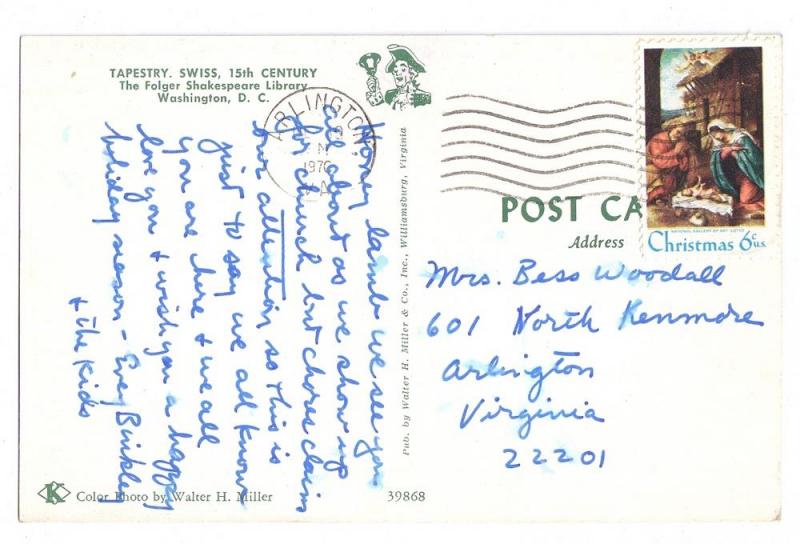 TAPESTRY. SWISS, 15th CENTURY
The Folger Shakespeare Library
Washington, D. C.
ARLINGTON
1970
Honey lamb we see you
all about as we show up
for church but chores claim
our attention so this is
just to say we all know
you are here & we all
love you & wish you a happy
holiday season - Binkley
& the kids
Pub. by Walter H. Miller & Co., Inc., Williamsburg, Virginia
K
Color Photo by Walter H. Miller
39868
POST CA
Address
NATIONAL GALLERY OF ART
Christmas 6c U.S.
Mrs. Bess Woodall
601 North Kenmore
Arlington
Virginia
22201